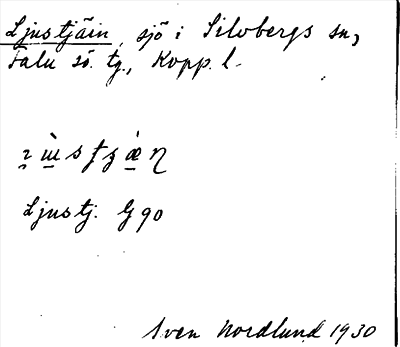 Ljustjäin, sjö i Silvbergs sn,
Falu sö. tg., Kopp. l.
Ljustj. G 90
Sven Nordlund 1930